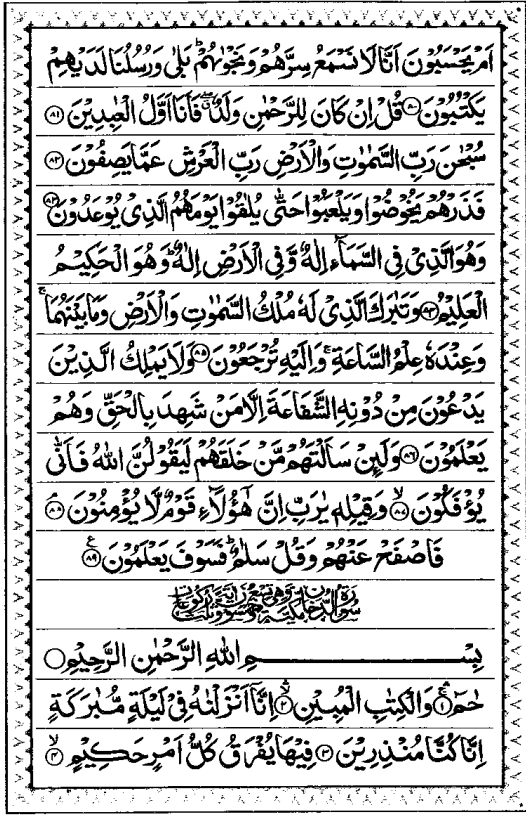 اَمۡ يَحۡسَبُوۡنَ اَنَّا لَا نَسۡمَعُ سِرَّهُمۡ وَنَجۡوٰٮهُمۡ‌ؕ بَلٰى وَرُسُلُنَا لَدَيۡهِمۡ
يَكۡتُبُوۡنَ ۸۰ قُلۡ اِنۡ كَانَ لِلرَّحۡمٰنِ وَلَدٌ ‌ۖ فَاَنَا اَوَّلُ الۡعٰبِدِيۡنَ ۸۱
سُبۡحٰنَ رَبِّ السَّمٰوٰتِ وَالۡاَرۡضِ رَبِّ الۡعَرۡشِ عَمَّا يَصِفُوۡنَ ۸۲
فَذَرۡهُمۡ يَخُوۡضُوۡا وَيَلۡعَبُوۡا حَتّٰى يُلٰقُوۡا يَوۡمَهُمُ الَّذِىۡ يُوۡعَدُوۡنَ ۸۳
وَهُوَ الَّذِىۡ فِى السَّمَآءِ اِلٰهٌ وَّفِى الۡاَرۡضِ اِلٰهٌ‌ ؕ وَهُوَ الۡحَكِيۡمُ
الۡعَلِيۡمُ ۸۴ وَتَبٰرَكَ الَّذِىۡ لَهٗ مُلۡكُ السَّمٰوٰتِ وَالۡاَرۡضِ وَمَا بَيۡنَهُمَا‌ ۚ
وَعِنۡدَهٗ عِلۡمُ السَّاعَةِ‌ ۚ وَاِلَيۡهِ تُرۡجَعُوۡنَ ۸۵ وَلَا يَمۡلِكُ الَّذِيۡنَ
يَدۡعُوۡنَ مِنۡ دُوۡنِهِ الشَّفَاعَةَ اِلَّا مَنۡ شَهِدَ بِالۡحَقِّ وَهُمۡ
يَعۡلَمُوۡنَ ۸۶ وَلَٮِٕنۡ سَاَلۡتَهُمۡ مَّنۡ خَلَقَهُمۡ لَيَقُوۡلُنَّ اللّٰهُ‌ فَاَنّٰى
يُؤۡفَكُوۡنَۙ ۸۷ وَقِيۡلِهٖ يٰرَبِّ اِنَّ هٰٓؤُلَاۤءِ قَوۡمٌ لَّا يُؤۡمِنُوۡنَ‌ۘ ۸۸
فَاصۡفَحۡ عَنۡهُمۡ وَقُلۡ سَلٰمٌ‌ؕ فَسَوۡفَ يَعۡلَمُوۡنَ ۸۹
سورة الدخان مكية وهى
بِسۡمِ اللّٰهِ الرَّحۡمٰنِ الرَّحِيۡمِ
حٰمٓ ۚ‌ۛ ۱ وَالۡكِتٰبِ الۡمُبِيۡنِ ‌ۙ‌ۛ ۲ اِنَّاۤ اَنۡزَلۡنٰهُ فِىۡ لَيۡلَةٍ مُّبٰرَكَةٍ
اِنَّا كُنَّا مُنۡذِرِيۡنَ ۳ فِيۡهَا يُفۡرَقُ كُلُّ اَمۡرٍ حَكِيۡمٍۙ ۴